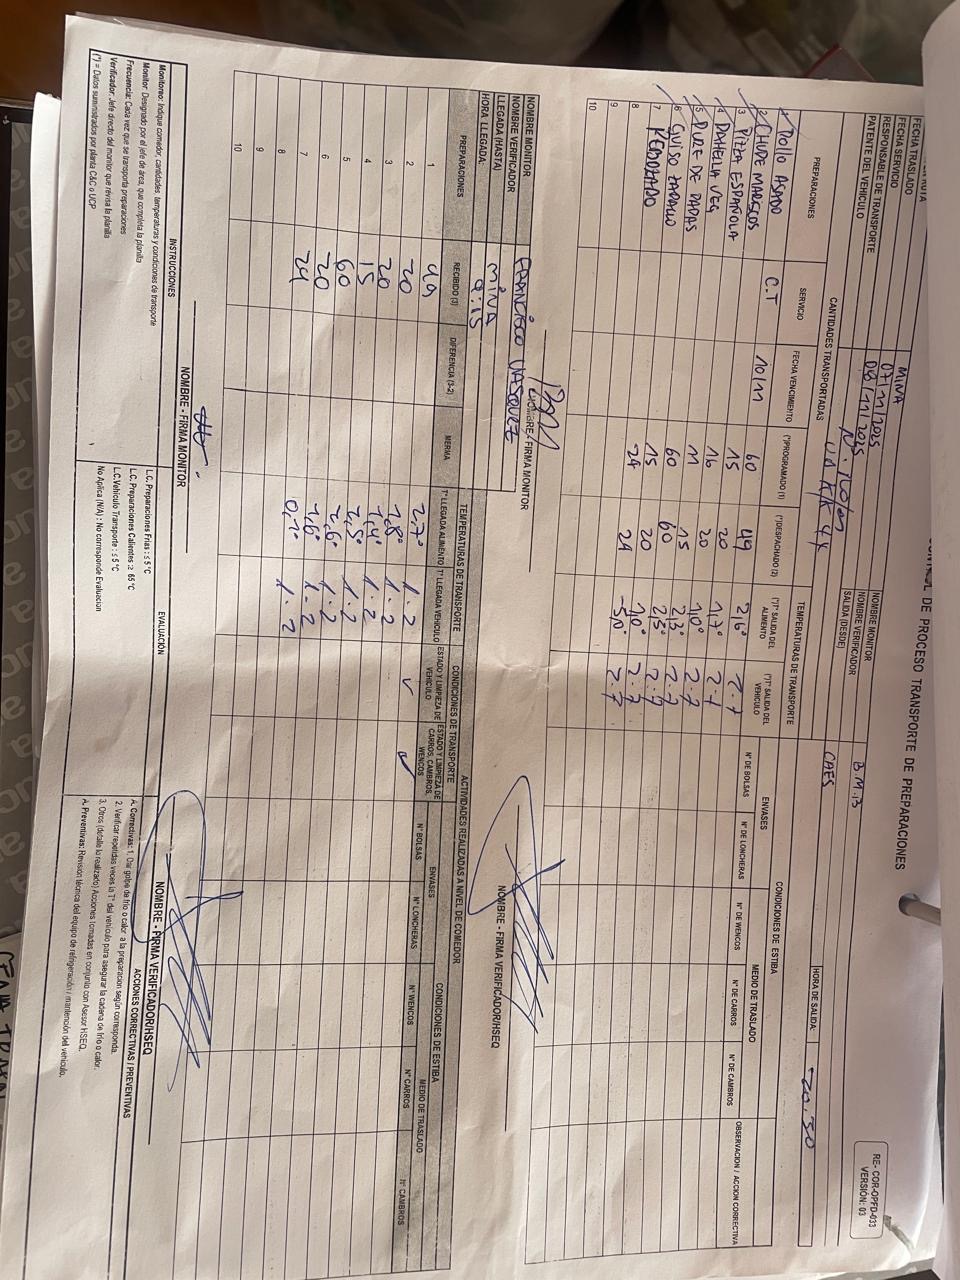 CONTROL DE PROCESO TRANSPORTE DE PREPARACIONES
RE- COR-OPFD-033
VERSIÓN: 03
MINA
FECHA TRASLADO 07/11/2025
FECHA SERVICIO 08/11/2025
RESPONSABLE DE TRANSPORTE
PATENTE DEL VEHICULO
NOMBRE MONITOR B.M.B
NOMBRE VERIFICADOR
SALIDA (DESDE) CAES
HORA DE SALIDA: 20:30
CANTIDADES TRANSPORTADAS
TEMPERATURAS DE TRANSPORTE
CONDICIONES DE ESTIBA
ENVASES
MEDIO DE TRASLADO
PREPARACIONES
SERVICIO
FECHA VENCIMIENTO
(*)PROGRAMADO (1)
(*)DESPACHADO (2)
(*)T° SALIDA DEL ALIMENTO
(*)T° SALIDA DEL VEHICULO
N° DE BOLSAS
N° DE LONCHERAS
N° DE WENCOS
N° DE CARROS
N° DE CAMBROS
OBSERVACION / ACCION CORRECTIVA
1 POLLO ASADO C.T 10/11 60 49 2,6° 2.7
2 CHUPE MARISCOS 15 20 1,7° 2.7
3 PIZZA ESPAÑOLA 16 20 1,0° 2.7
4 PAHELLA VEG 11 15 2,3° 2.7
5 PURE DE PAPAS 60 60 2,5° 2.7
6 GUISO ZAPALLO 15 20 1,0° 2.7
7 24 24 -5,0° 2.7
8
9
10
NOMBRE - FIRMA MONITOR
NOMBRE - FIRMA VERIFICADOR/HSEQ
NOMBRE MONITOR FRANCISCO VASQUEZ
NOMBRE VERIFICADOR
LLEGADA (HASTA) MINA
HORA LLEGADA: 9:15
ACTIVIDADES REALIZADAS A NIVEL DE COMEDOR
TEMPERATURAS DE TRANSPORTE
CONDICIONES DE TRANSPORTE
CONDICIONES DE ESTIBA
ENVASES
MEDIO DE TRASLADO
PREPARACIONES
RECIBIDO (3)
DIFERENCIA (3-2)
MERMA
T° LLEGADA ALIMENTO
T° LLEGADA VEHICULO
ESTADO Y LIMPIEZA DE VEHICULO
ESTADO Y LIMPIEZA DE CARROS, CAMBROS, WENCOS
N° BOLSAS
N° LONCHERAS
N° WENCOS
N° CARROS
N° CAMBROS
1 49 2,7° 1.2 ✓ ✓
2 20 1,8° 1.2
3 20 1,4° 1.2
4 15 2,5° 1.2
5 60 2,6° 1.2
6 20 1,6° 1.2
7 24 0,1° 1.2
8
9
10
NOMBRE - FIRMA MONITOR
NOMBRE - FIRMA VERIFICADOR/HSEQ
INSTRUCCIONES
EVALUACIÓN
ACCIONES CORRECTIVAS / PREVENTIVAS
Monitoreo: Indique comedor, cantidades, temperaturas y condiciones de transporte
Monitor: Designado por el jefe de área, que completa la planilla
Frecuencia: Cada vez que se transporta preparaciones
Verificador: Jefe directo del monitor que revisa la planilla
(*) = Datos suministrados por planta C&C o UCP
L.C. Preparaciones Frías : ≤ 5 °C
L.C. Preparaciones Calientes ≥ 65 °C
L.C.Vehículo Transporte : ≤ 5 °C
No Aplica (N/A) : No corresponde Evaluacion
A. Correctivas: 1. Dar golpe de frío o calor a la preparación según corresponda.
2. Verificar repetidas veces la T° del vehículo para asegurar la cadena de frío o calor.
3. Otros (detalle lo realizado) Acciones tomadas en conjunto con Asesor HSEQ.
A. Preventivas: Revisión técnica del equipo de refrigeración / mantención del vehículo.